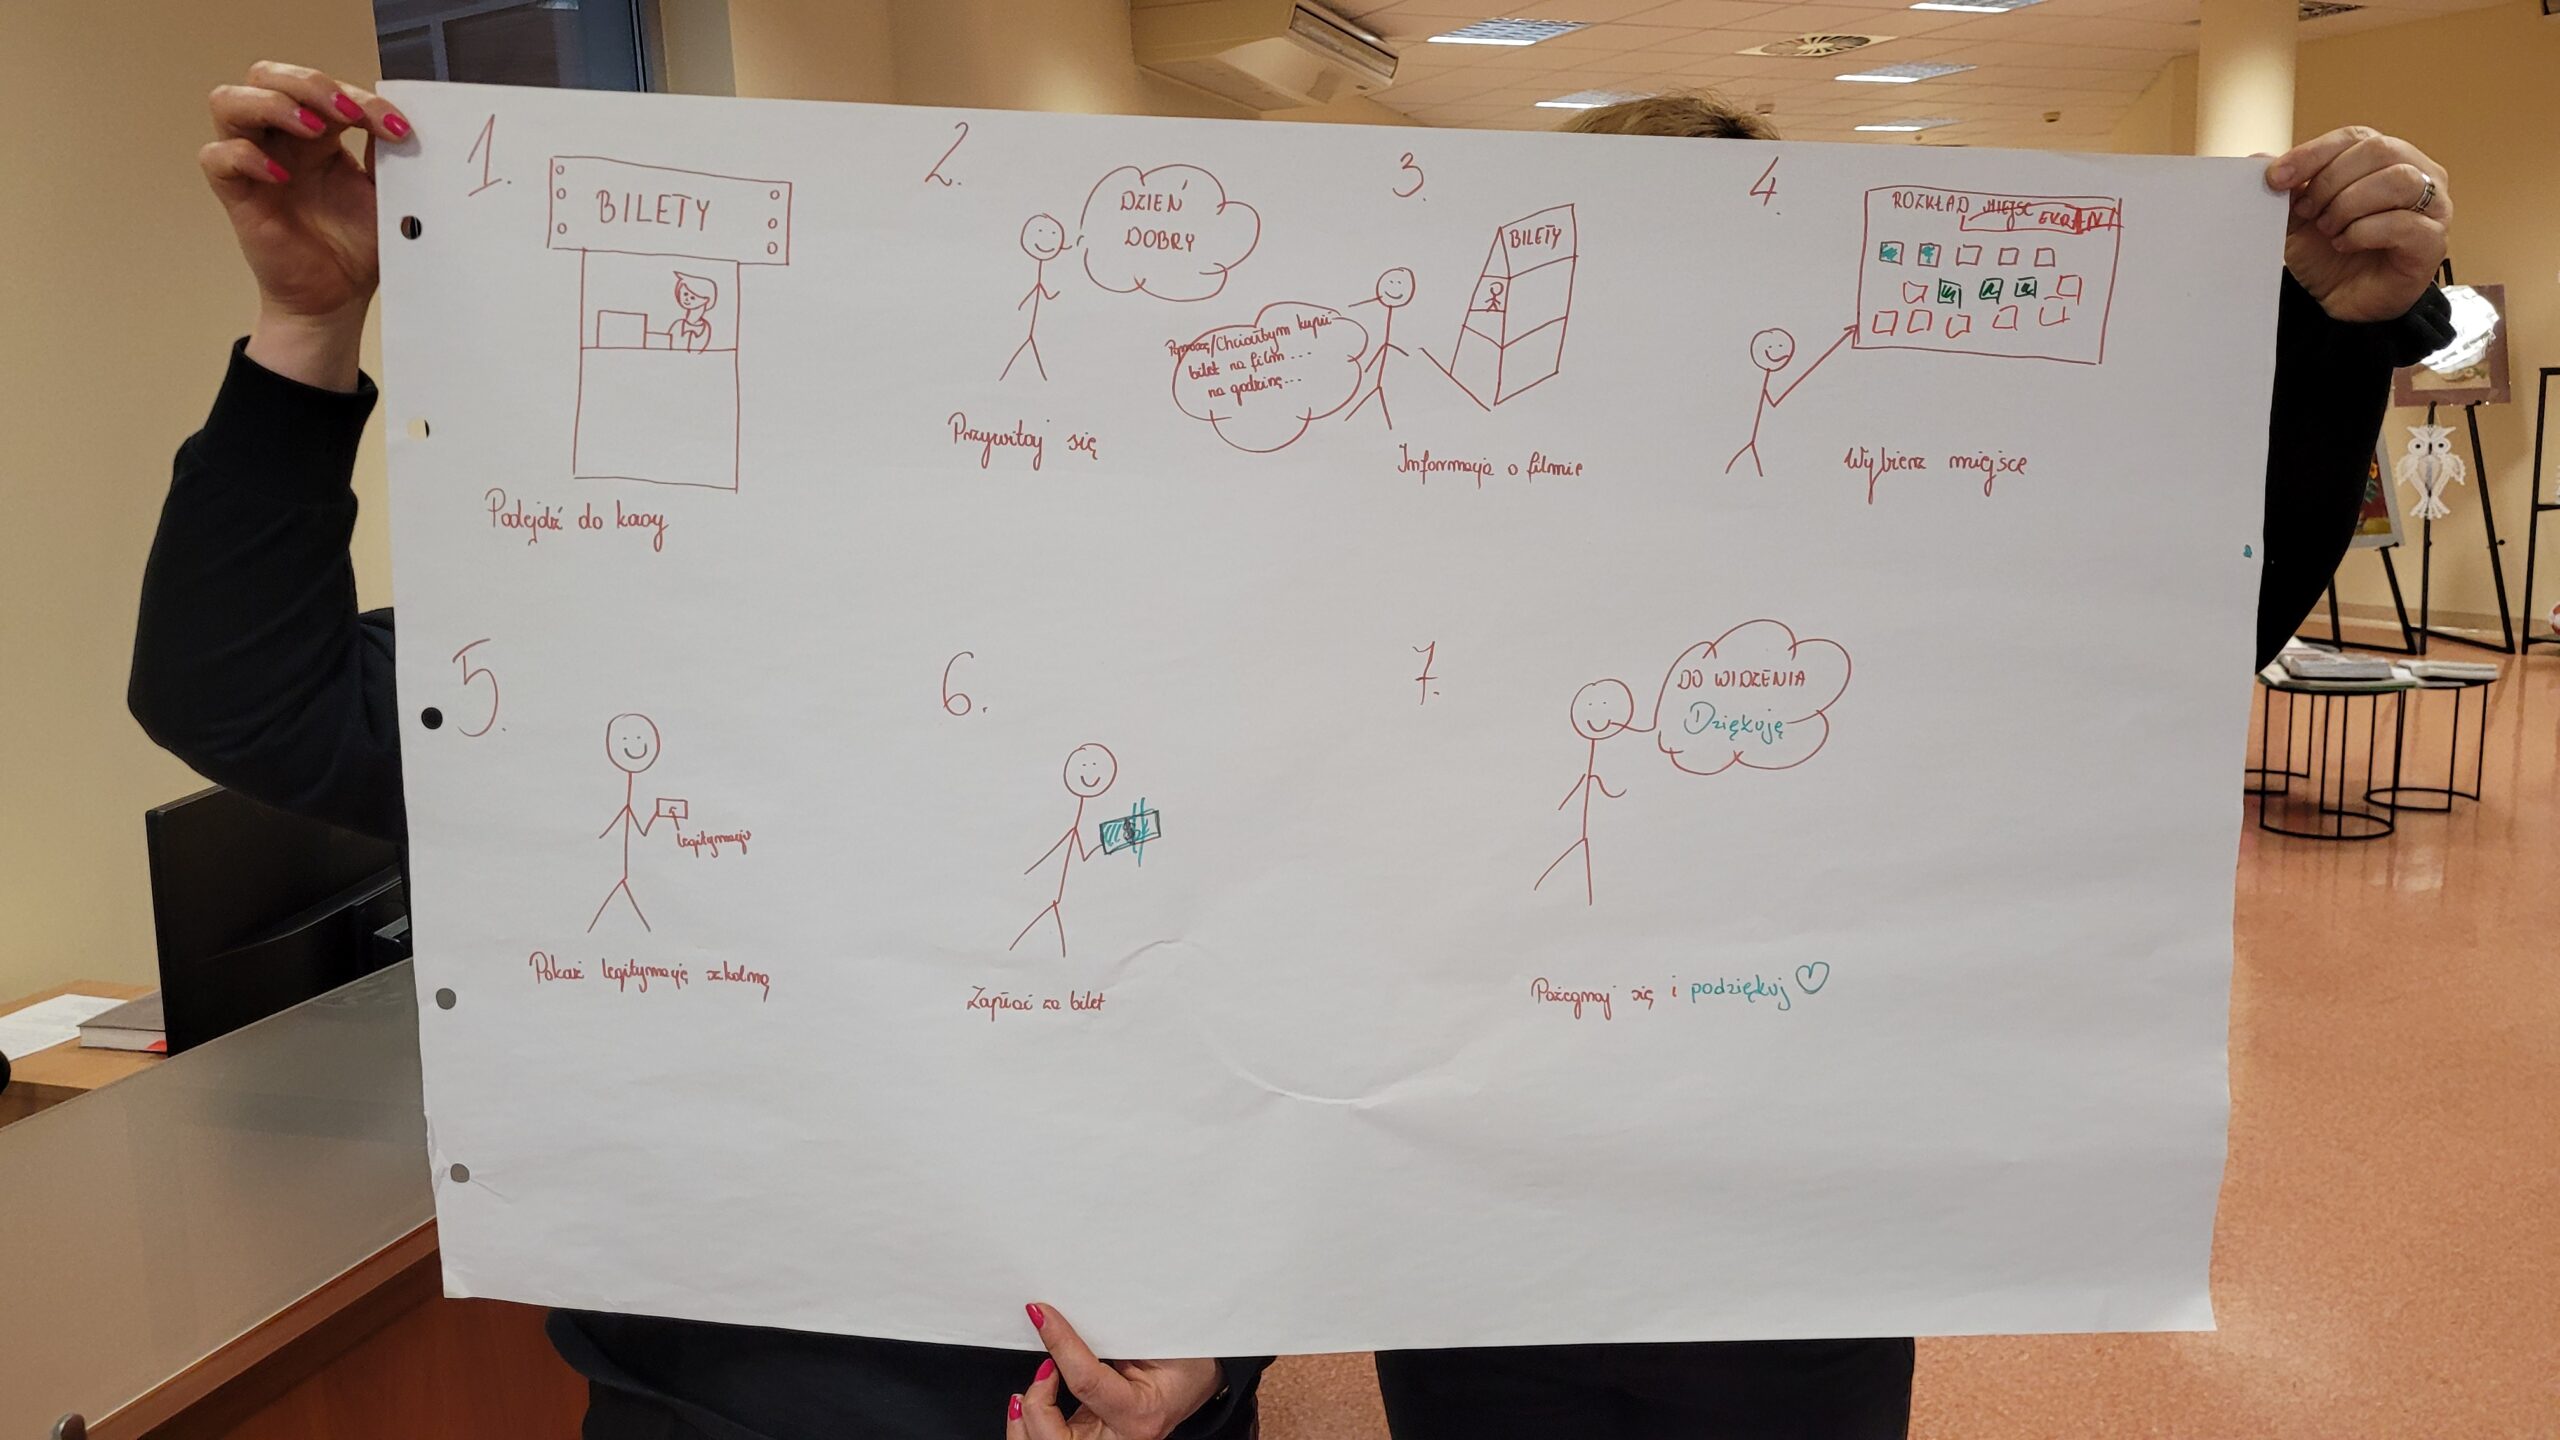 1.
BILETY
Podejdź do kasy
2.
DZIEŃ
DOBRY
Przywitaj się
3.
BILETY
Poproszę/Chciałbym kupić
bilet na film...
na godzinę...
Informacja o filmie
4.
ROZKŁAD MIEJSC
EKRAN
Wybierz miejsce
5.
legitymacja
Pokaż legitymację szkolną
6.
$
Zapłać za bilet
7.
DO WIDZENIA
Dziękuję
Pożegnaj się i podziękuj